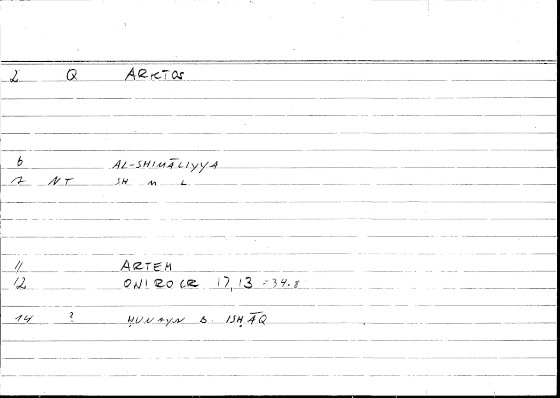 2 Q ARKTOS
6 AL-SHIMĀLIYYA
7 NT SH M L
11 ARTEM
12 ONIROCR 17,13 =34.8
14 ? ḤUNAYN B. ISḤĀQ